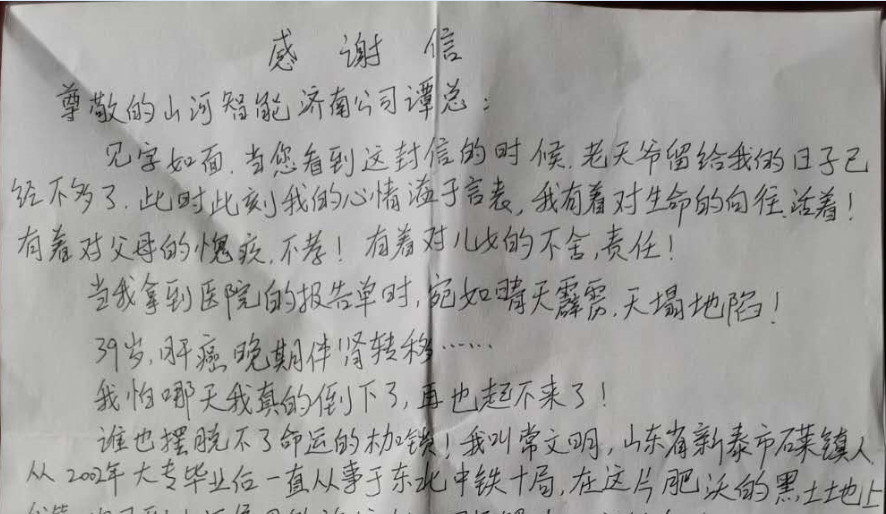 感谢信
尊敬的山河智能济南公司谭总：
见字如面.当您看到这封信的时候.老天爷留给我的日子已
经不多了.此时此刻我的心情溢于言表,我有着对生命的向往.活着!
有着对父母的愧疚,不孝!有着对儿女的不舍,责任!
当我拿到医院的报告单时,宛如晴天霹雳.天塌地陷!
39岁,肝癌晚期伴肾转移……
我怕哪天我真的倒下了,再也起不来了!
谁也摆脱不了命运的枷锁!我叫常文明,山东省新泰市镇人
从2002年大专毕业后一直从事于东北中铁十局,在这片肥沃的黑土地上